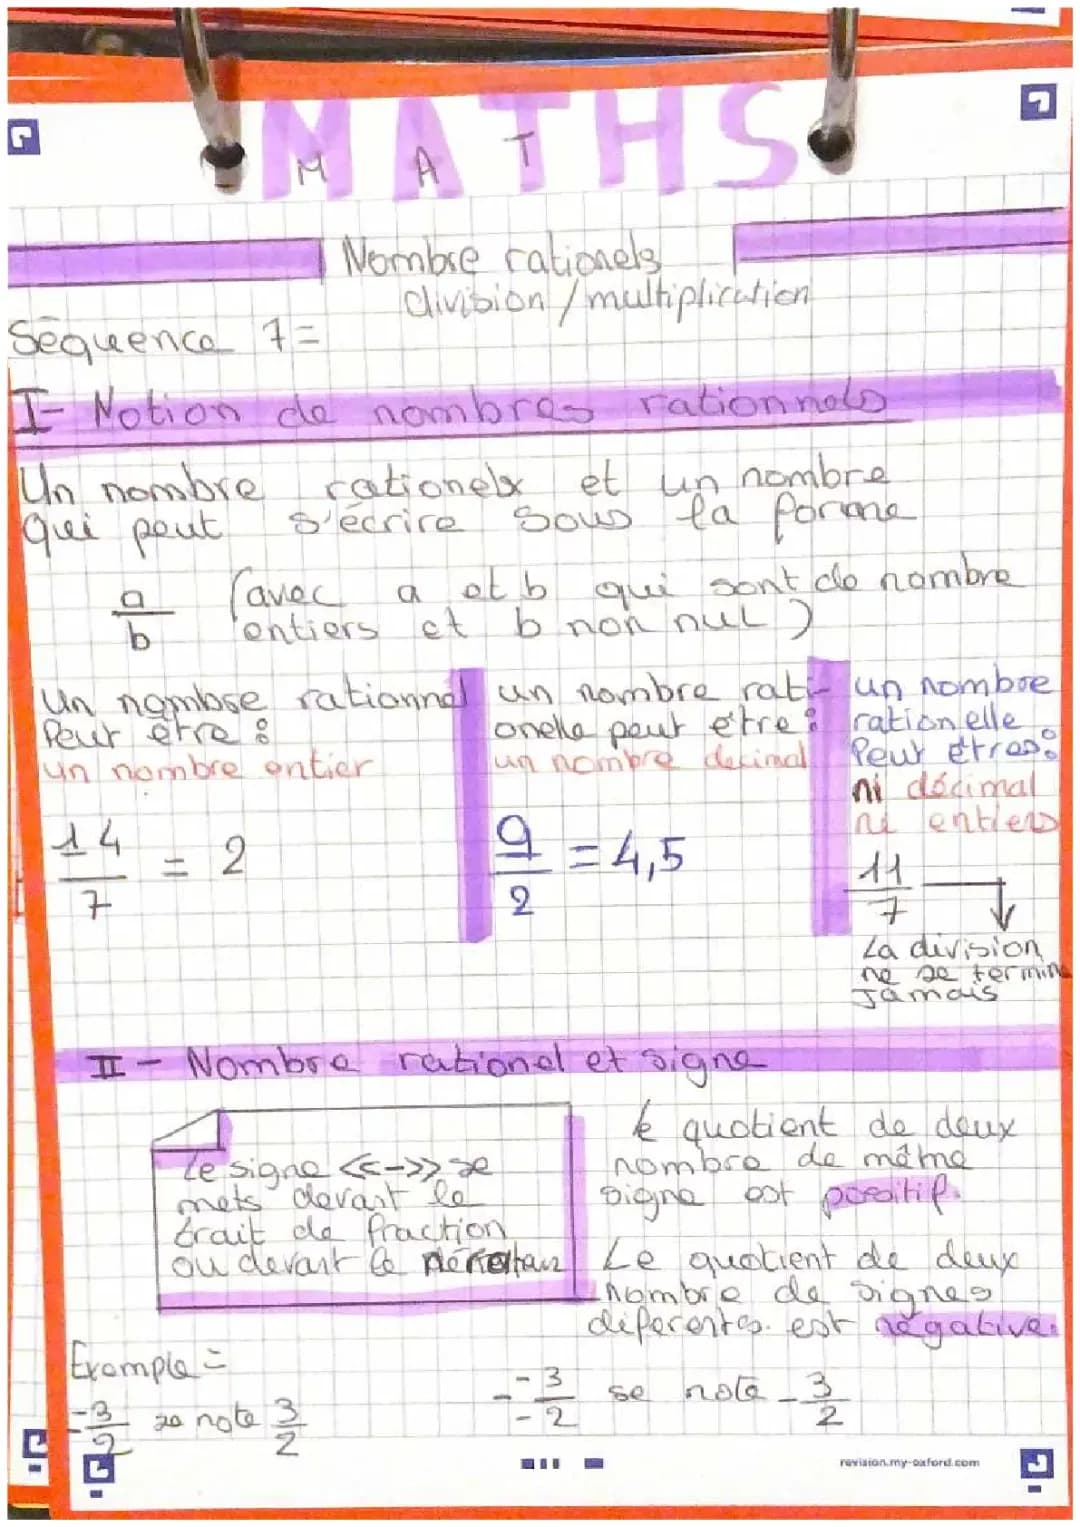 MATHS
M A T
Nombre rationels
division / multiplication
Séquence 7=
I- Notion de nombres rationnels
Un nombre rationelx et un nombre
qui peut s'écrire sous la forme
a/b (avec a et b qui sont de nombre
entiers et b non nul)
Un nombre rationnel
Peut être :
un nombre entier
14/7 = 2
un nombre rati-
onelle peut être :
un nombre décimal
9/2 = 4,5
un nombre
rationelle
Peut êtres :
ni décimal
ni entiers
11/7
La division
ne se termine
Jamais
II - Nombre rationel et signe
Le signe <<->> se
mets devant le
trait de fraction
ou devant le
le quotient de deux
nombre de même
signe est positif.
Le quotient de deux
nombre de signes
diferentes. est négative.
Exemple =
-3/2 se note 3/2
- -3/-2 se note -3/2
revision.my-oxford.com